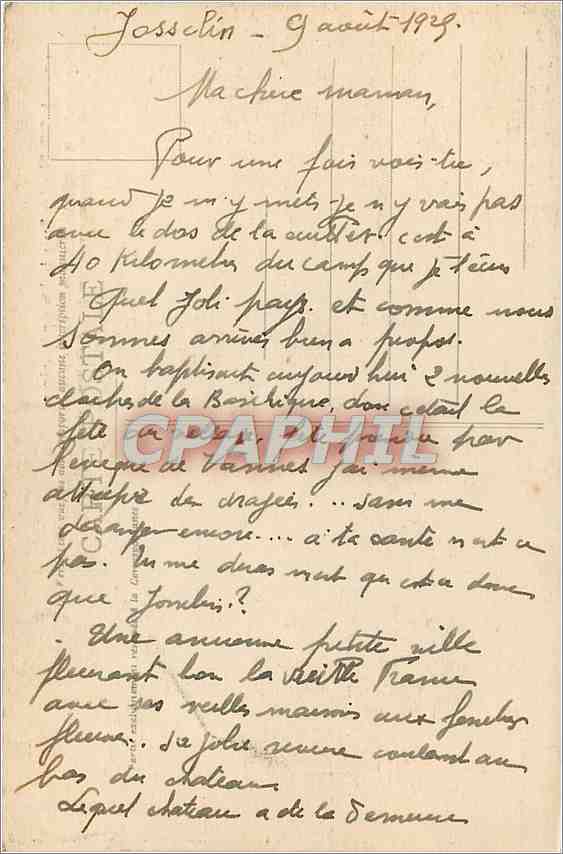 Josselin - 9 août 1929.
Ma chère maman,
Pour une fois vois-tu,
quand je m'y mets je n'y vais pas
avec le dos de la cuiller. c'est à
40 kilomètres du camp que je t'écris
Quel Joli pays. et comme nous
sommes arrivés bien à propos.
On baptisait aujourd'hui 2 nouvelles
cloches de la Basilique, donc c'était la
fête
par
l'évêque de Vannes j'ai même
attrapé des dragées... sans me
déranger encore.... à ta santé n'est ce
pas. Tu me diras n'est qu'est ce donc
que Josselin?
- Une ancienne petite ville
fleurant bon la vieille France
avec ses vieilles maisons aux fenêtres
fleuries.. sa jolie rivière coulant au
bas du château
Lequel château a de la demeure
CARTE POSTALE
CPAPHIL